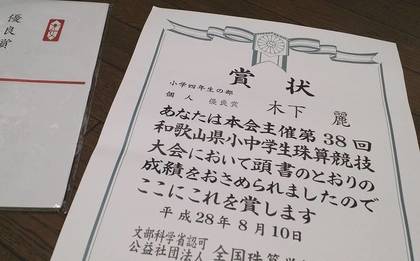 優良賞
賞状
小学四年生の部
個人 優良賞 木下 麗
あなたは本会主催第38回
和歌山県小中学生珠算競技
大会において頭書のとおりの
成績をおさめられましたので
ここにこれを賞します
平成28年8月10日
文部科学省認可
公益社団法人 全国珠算学